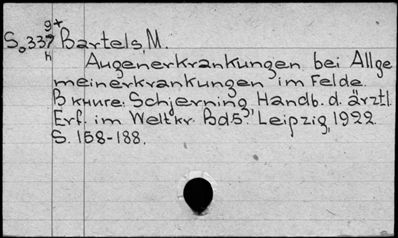 g+
S₀337 Bartels, M.
h
Augenerkrankungen bei Allge
meinerkrankungen im Felde.
В книге: Schjerning, Handb. d. ärztl.
Erf. im Weltkr. Bd.5. Leipzig, 1922.
S. 158-188.